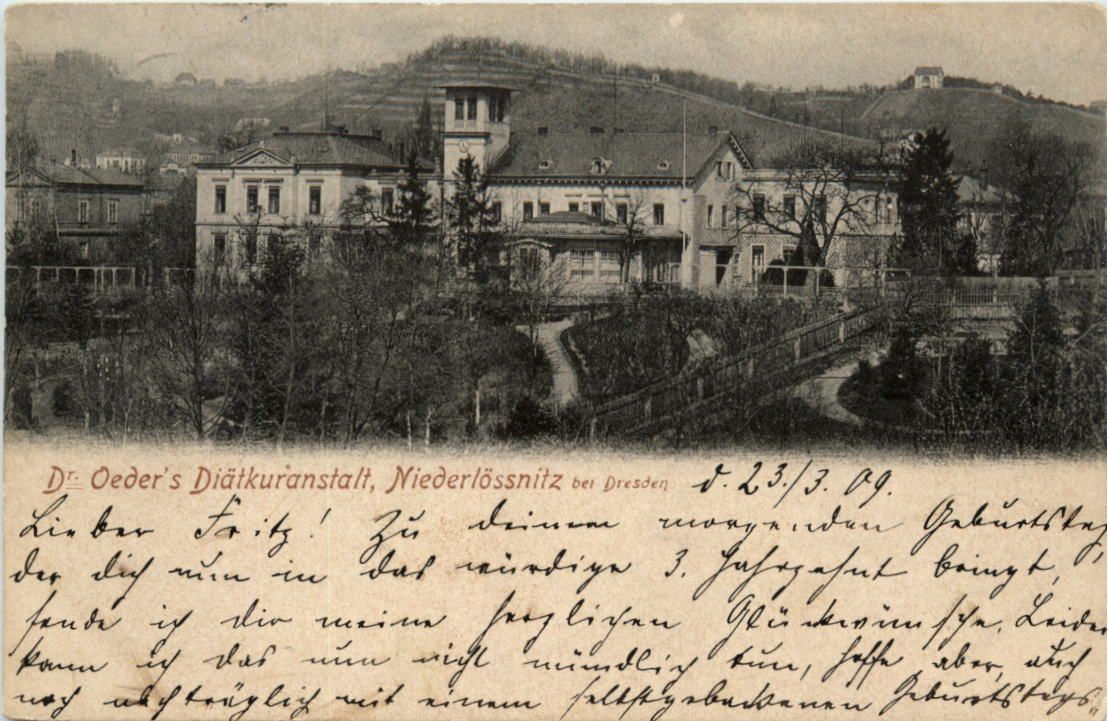 Dr. Oeder's Diätkuranstalt, Niederlössnitz bei Dresden
d. 23./3. 09.
Lieber Fritz! Zu deinem morgenden Geburtstag,
der dich nun in das würdige 3. Jahrzehnt bringt,
sende ich dir meine herzlichen Glückwünsche. Leider
kann ich das nun nicht mündlich tun, hoffe aber, auch
noch nachträglich mit einem selbstgebackenen Geburtstags-